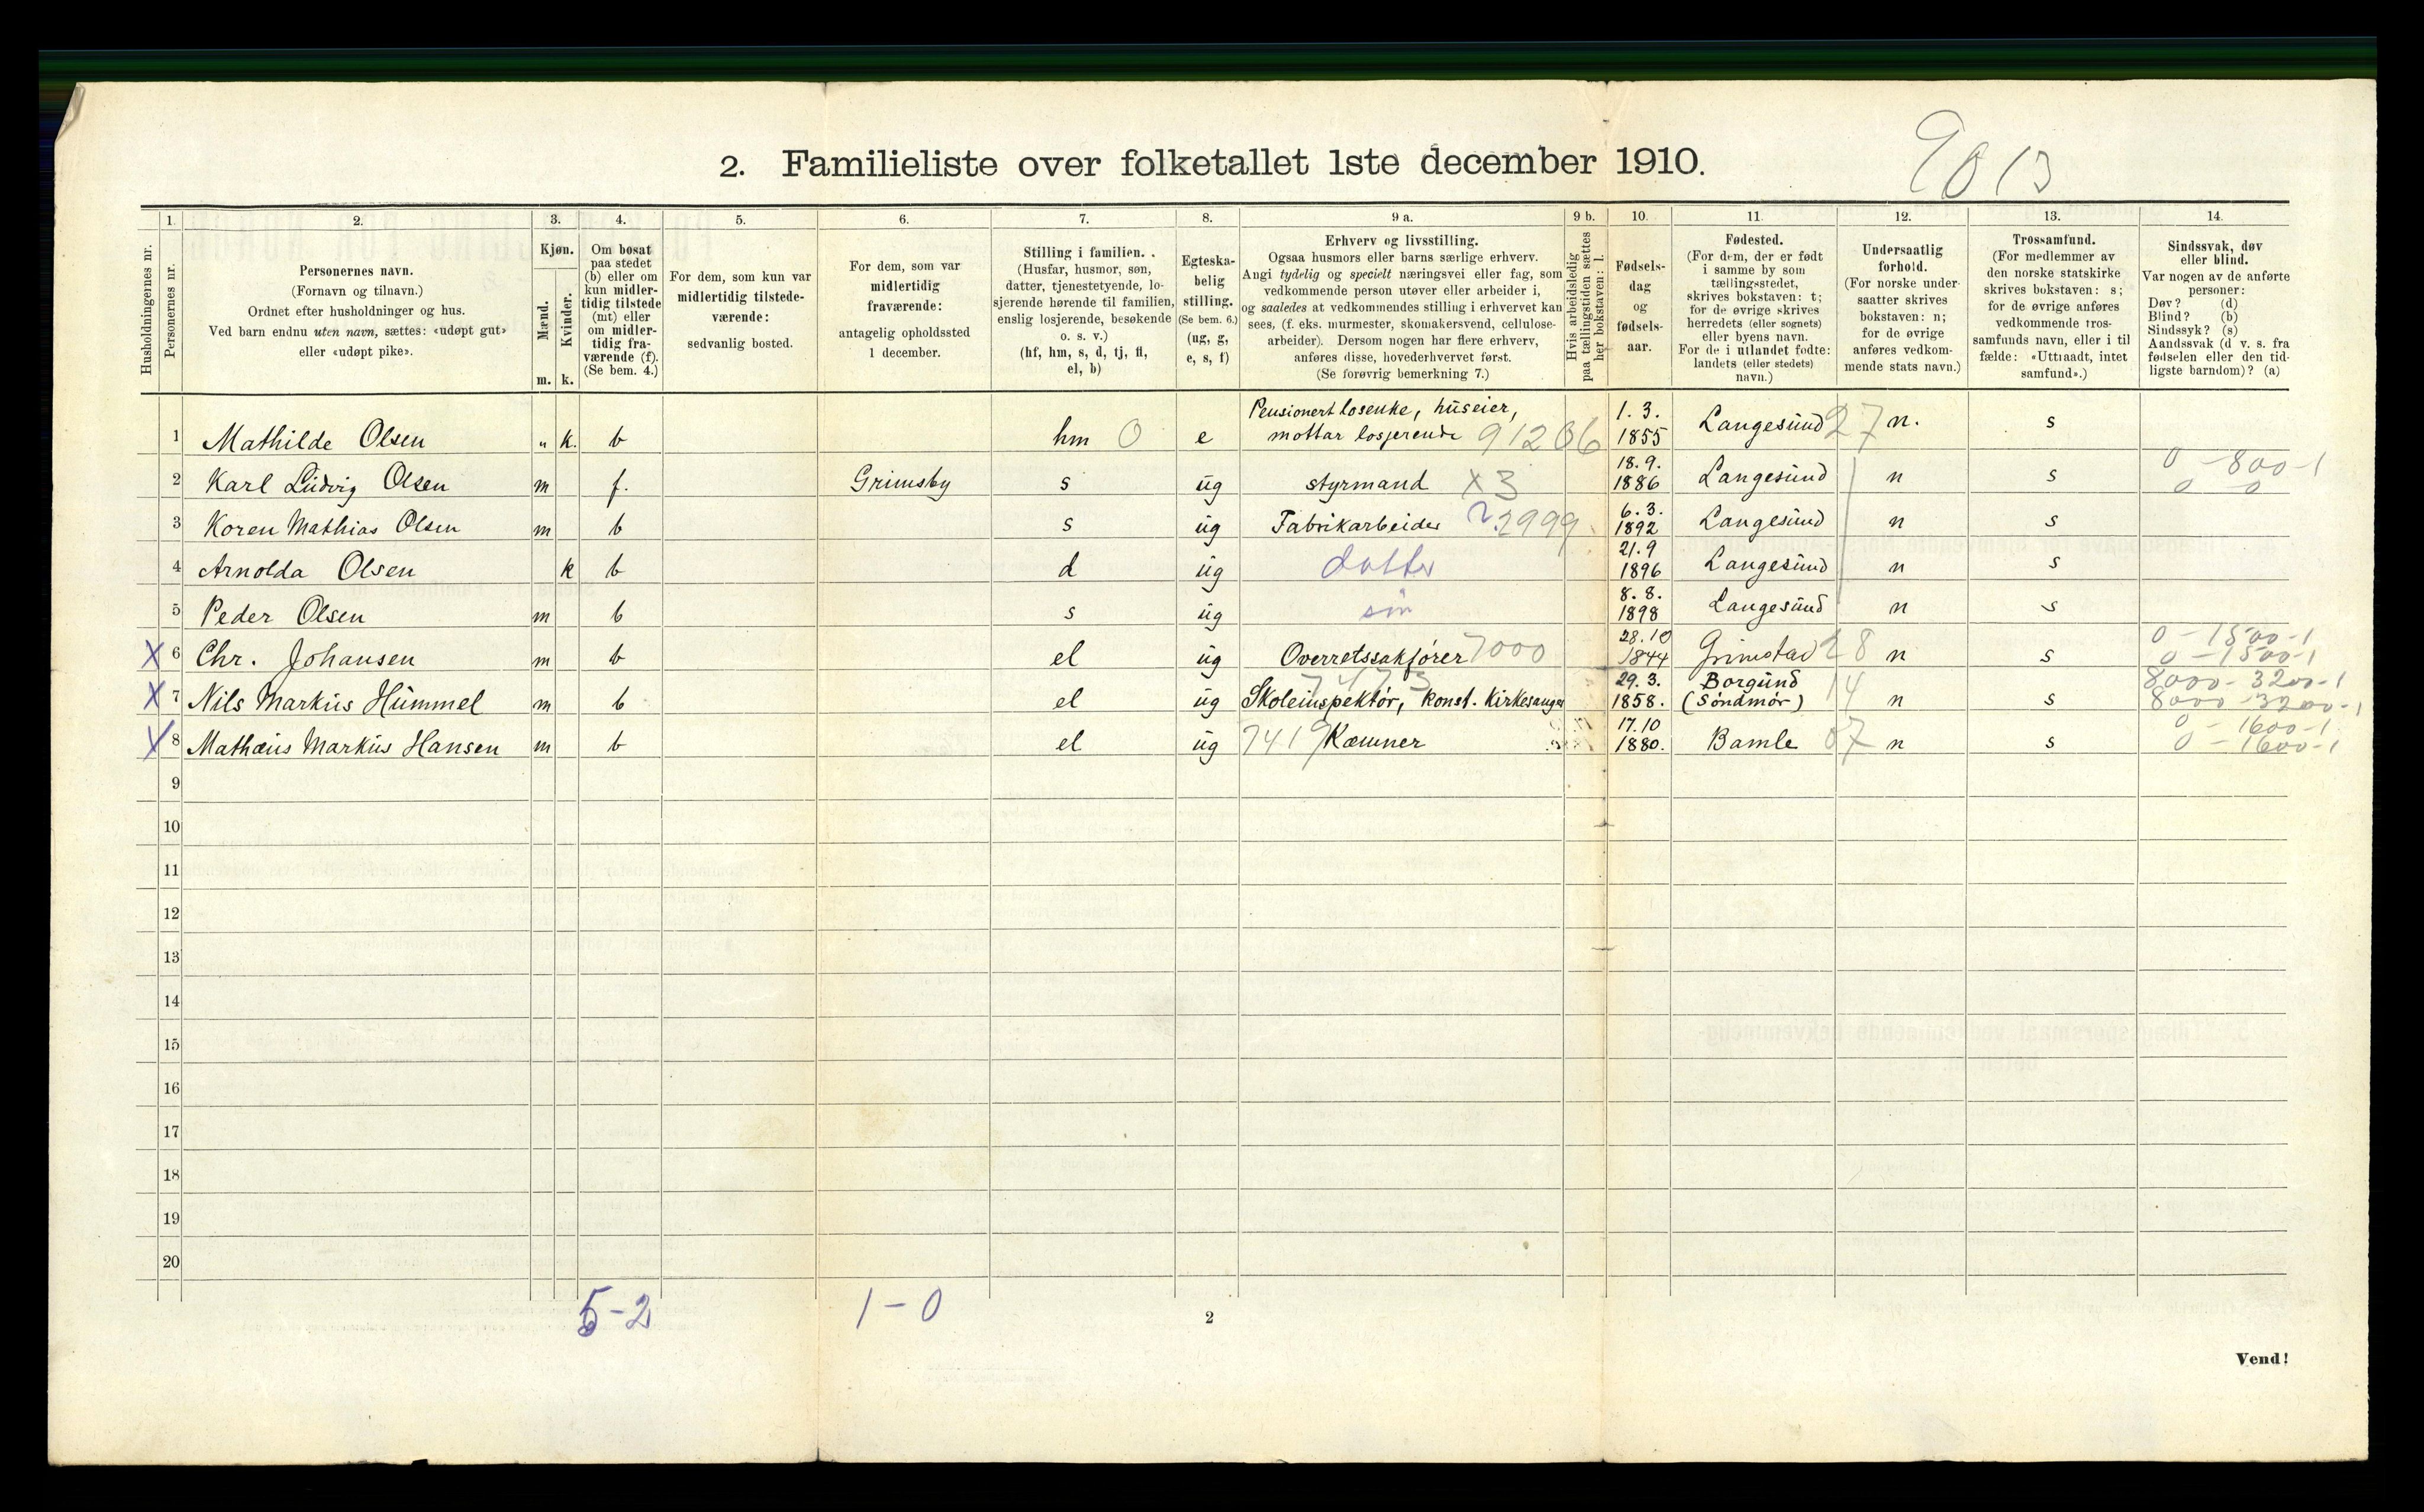 2. Familieliste over folketallet 1ste december 1910.
1. 2. 3. 4. 5. 6. 7. 8. 9 a. 9 b. 10. 11. 12. 13. 14.
Husholdningernes nr.
Personernes nr.
Personernes navn.
(Fornavn og tilnavn.)
Ordnet efter husholdninger og hus.
Ved barn endnu uten navn, sættes: «udøpt gut»
eller «udøpt pike».
Kjøn.
Mænd.
m.
Kvinder.
k.
Om bosat
paa stedet
(b) eller om
kun midler-
tidig tilstede
(mt) eller
om midler-
tidig fra-
værende (f).
(Se bem. 4.)
For dem, som kun var
midlertidig tilstede-
værende:
sedvanlig bosted.
For dem, som var
midlertidig
fraværende:
antagelig opholdssted
1 december.
Stilling i familien.
(Husfar, husmor, søn,
datter, tjenestetyende, lo-
sjerende hørende til familien,
enslig losjerende, besøkende
o. s. v.)
(hf, hm, s, d, tj, fl,
el, b)
Egteska-
belig
stilling.
(Se bem. 6.)
(ug, g,
e, s, f)
Erhverv og livsstilling.
Ogsaa husmors eller barns særlige erhverv.
Angi tydelig og specielt næringsvei eller fag, som
vedkommende person utøver eller arbeider i,
og saaledes at vedkommendes stilling i erhvervet kan
sees, (f. eks. murmester, skomakersvend, cellulose-
arbeider). Dersom nogen har flere erhverv,
anføres disse, hovederhvervet først.
(Se forøvrig bemerkning 7.)
Hvis arbeidsledig
paa tællingstiden sættes
her bokstaven: l.
Fødsels-
dag
og
fødsels-
aar.
Fødested.
(For dem, der er født
i samme by som
tællingsstedet,
skrives bokstaven: t;
for de øvrige skrives
herredets (eller sognets)
eller byens navn.
For de i utlandet fødte:
landets (eller stedets)
navn.)
Undersaatlig
forhold.
(For norske under-
saatter skrives
bokstaven: n;
for de øvrige
anføres vedkom-
mende stats navn.)
Trossamfund.
(For medlemmer av
den norske statskirke
skrives bokstaven: s;
for de øvrige anføres
vedkommende tros-
samfunds navn, eller i til-
fælde: «Uttraadt, intet
samfund».)
Sindssvak, døv
eller blind.
Var nogen av de anførte
personer:
Døv? (d)
Blind? (b)
Sindssyk? (s)
Aandssvak (d v. s. fra
fødselen eller den tid-
ligste barndom)? (a)
1 Mathilde Olsen „ k. b hm 0 e Pensionert losenke, huseier, mottar losjerende 1. 3. 1855 Langesund 27 n. s
2 Karl Ludvig Olsen m f. Grimsby s ug styrmand x3 18.9. 1886 Langesund n s 0 - 800-1 0 0
3 Koren Mathias Olsen m b s ug Fabrikarbeider 2999 6.3. 1892 Langesund n s
4 Arnolda Olsen k b d ug datter 21.9 1896 Langesund n s
5 Peder Olsen m b s ug søn 8.8. 1898 Langesund n s
X 6 Chr. Johansen m b el ug Overretssakfører 7000 28.10 1844 Grimstad 28 n s 0 - 1500-1 0 - 1500-1
X 7 Nils Markus Hummel m b el ug 7473 Skoleinspektør, konst. Kirkesanger 29.3. 1858. Borgund (Søndmør) 14 n s 8000 - 3200-1 8000 - 3200-1
X 8 Mathæus Markus Hansen m b el ug 7419 Kæmner 17.10 1880. Bamle 07 n s 0 - 1600-1 0 - 1600-1
9
10
11
12
13
14
15
16
17
18
19
20
5-2 1-0
2
Vend!